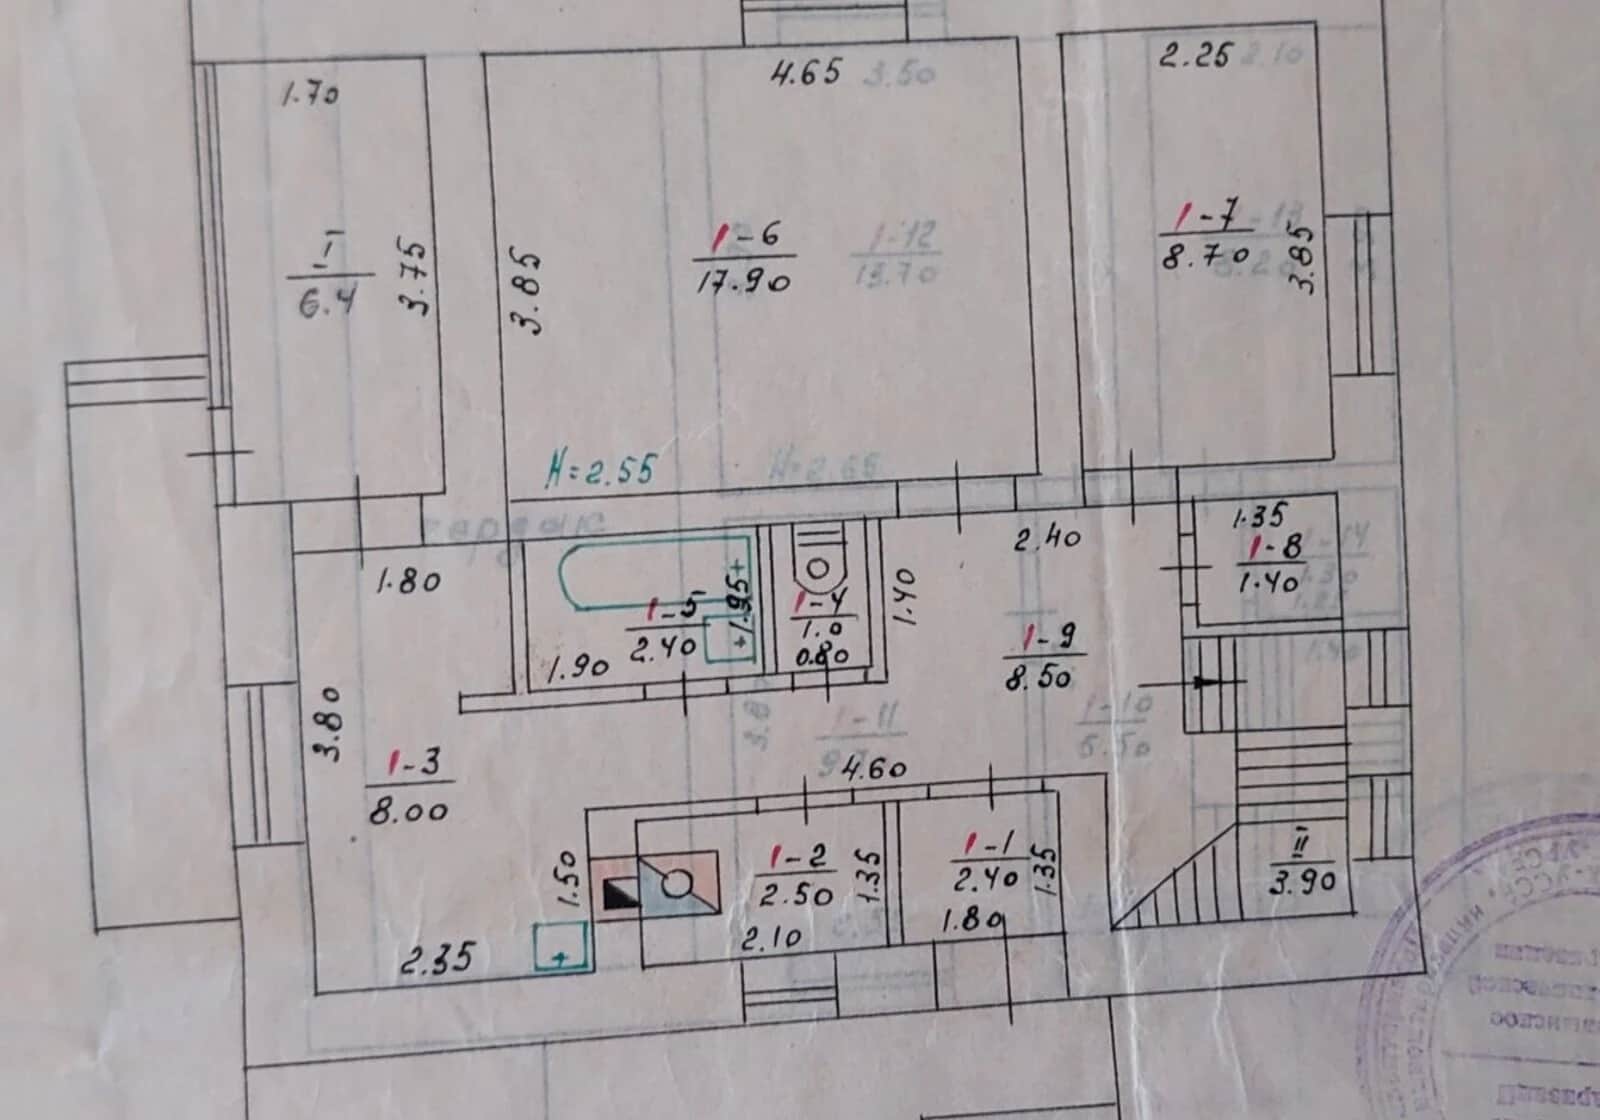 1.70
4.65
3.50
2.25
2.10
I
6.4
3.75
3.85
1-6
17.90
1-12
13.70
1-7
8.70
3.85
H=2.55
H=2.65
1.80
1-5
2.40
1.95
1.90
1-4
1.0
0.80
1.40
2.40
1.35
1-8
1.40
1-14
1-9
8.50
3.80
1-3
8.00
1-11
1-10
5.50
4.60
1-2
2.50
1.35
2.10
1-1
2.40
1.35
1.80
1.50
2.35
II
3.90